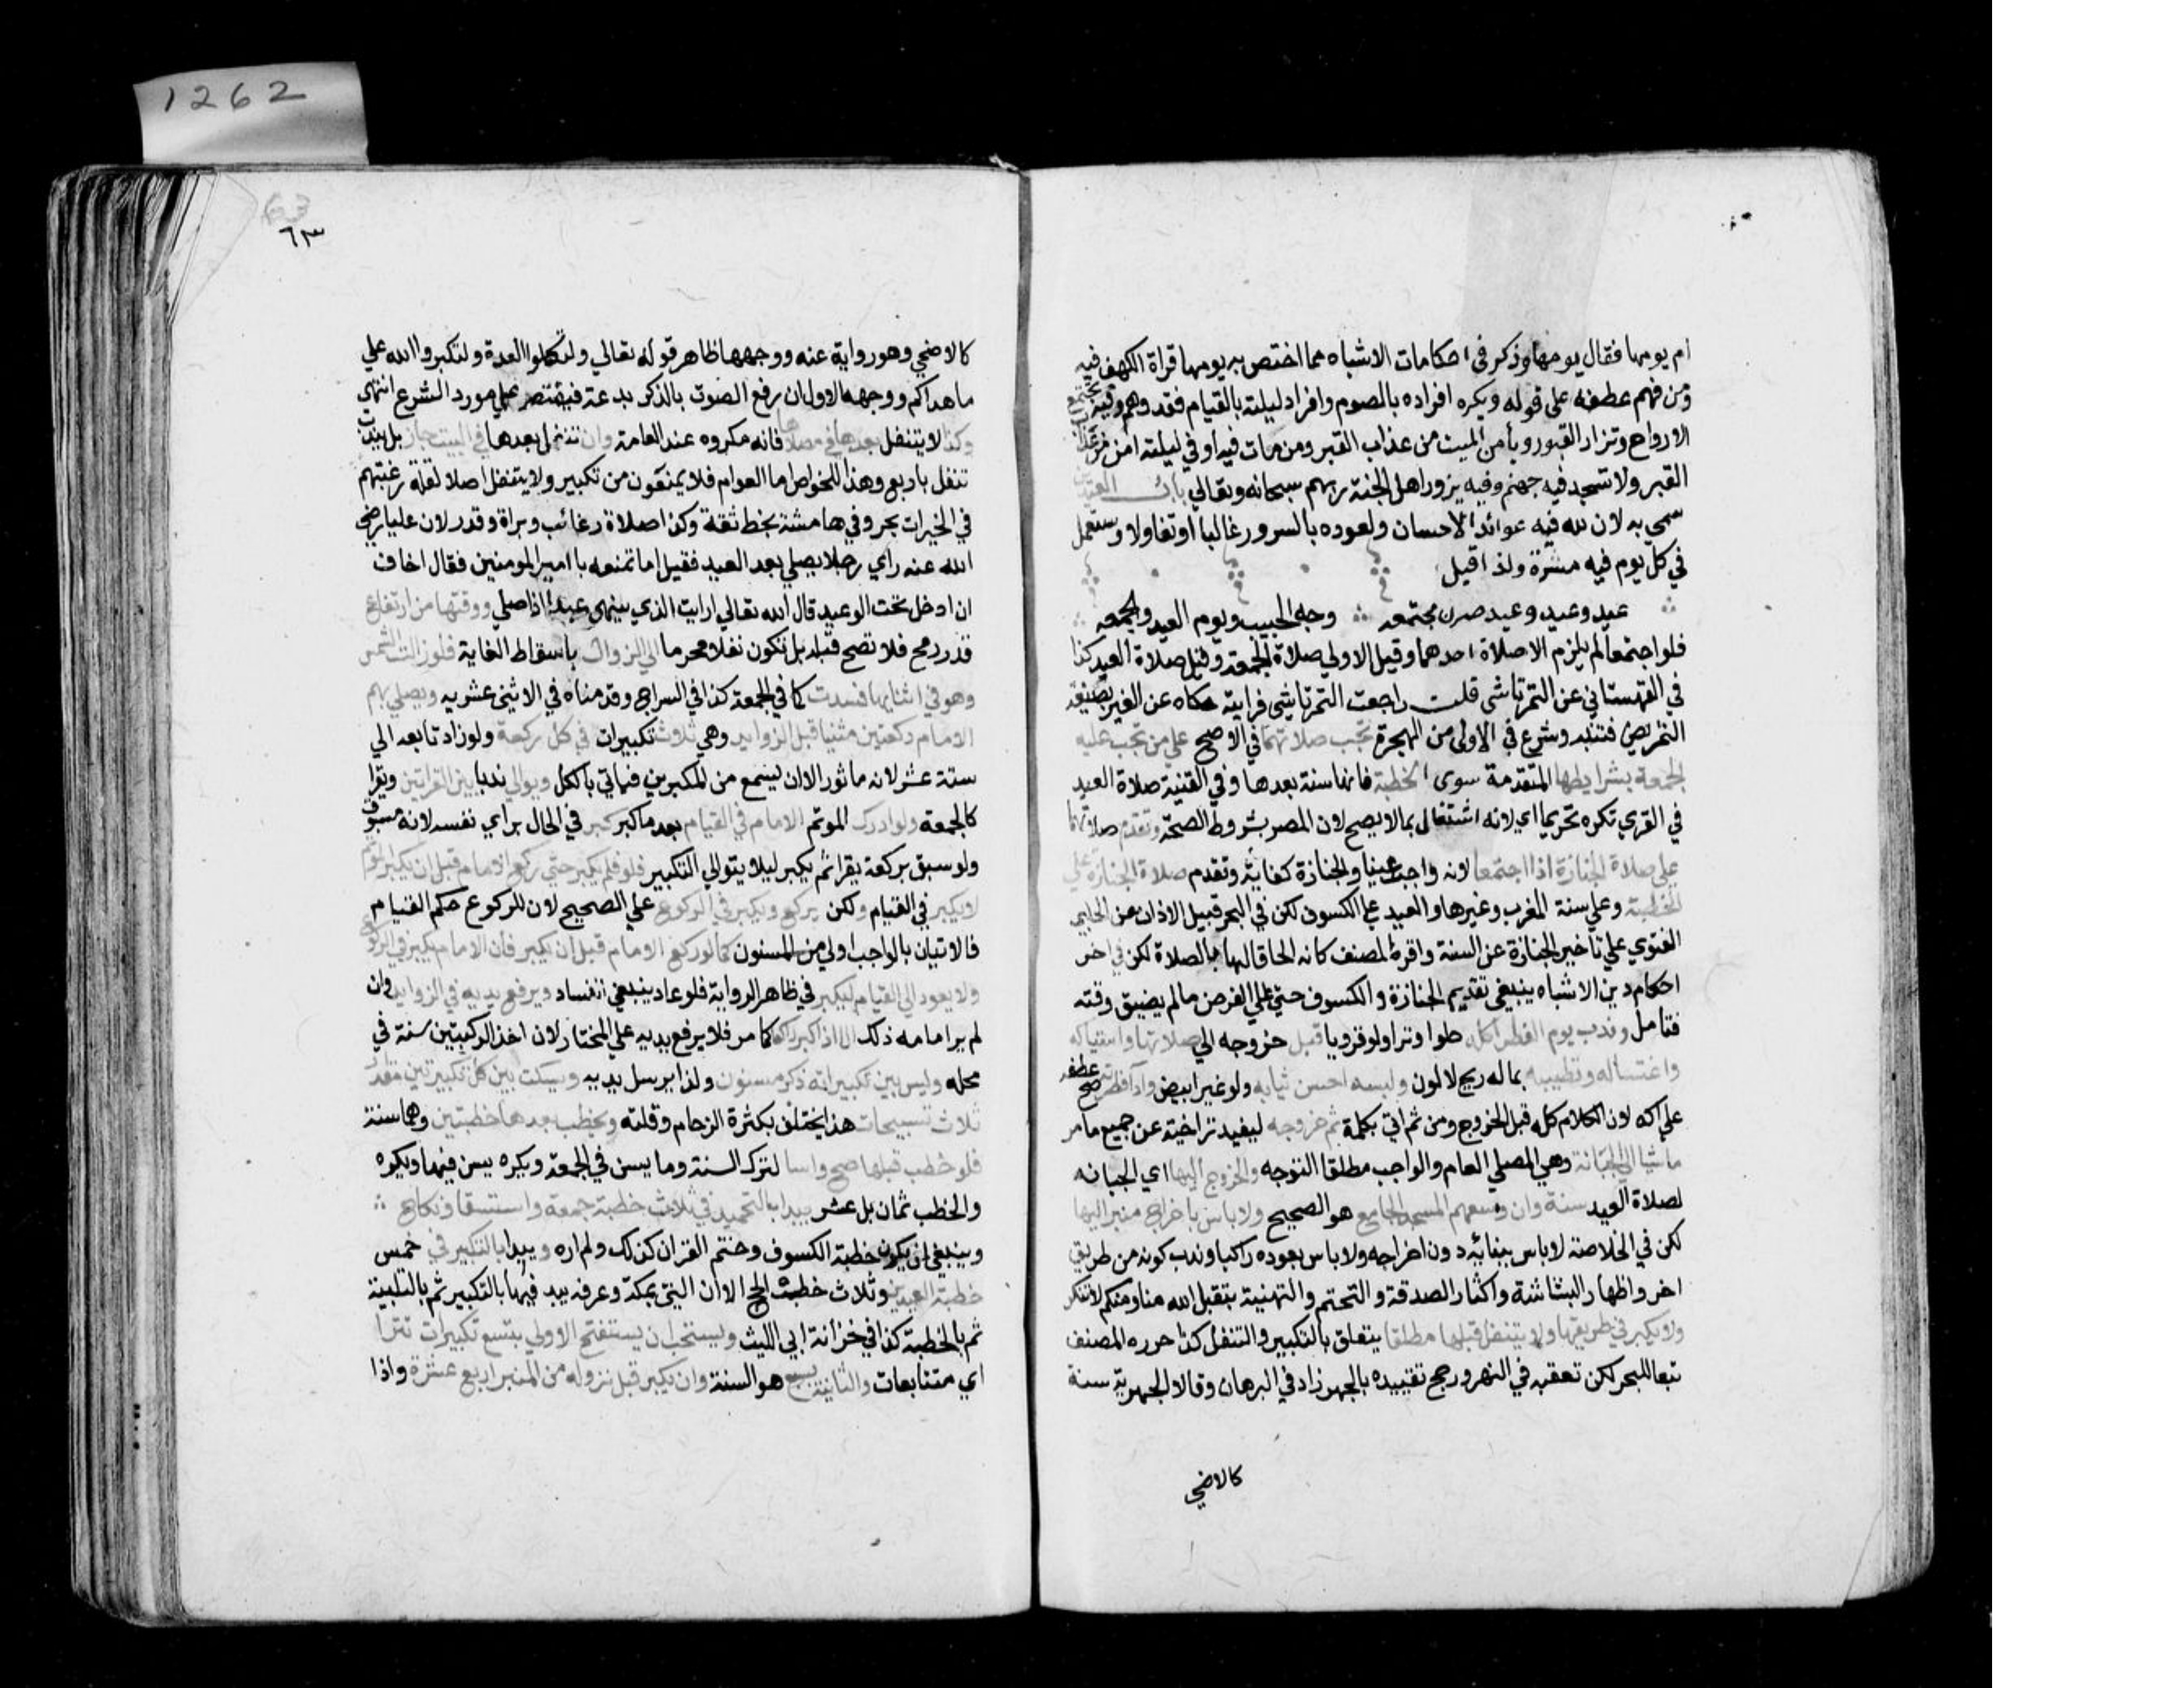 ام يومها فقال يومها وذكر في احكامات الاشباه مما اختص به يومها قراة الكهف فيه
ومن فهم عطفه على قوله ويكره افراده بالصوم وافراد ليلته بالقيام فقد وهم وفيه تجتمع
الارواح وتزار القبور ويأمن الميت من عذاب القبر ومن مات فيه او في ليلته امن من عذاب
القبر ولا تسجر فيه جهنم وفيه يزور اهل الجنة ربهم سبحانه وتعالي باب العيدين
سمي به لان لله فيه عوائد الاحسان ولعوده بالسرور غالبا او تفاولا ويستعمل
في كل يوم فيه مسرة ولذا قيل
عيد وعيد وعيد صرن مجتمعه وجه الحبيب ويوم العيد والجمعه
فلو اجتمعا لم يلزم الا صلاة احدهما وقيل الاولي صلاة الجمعة وقيل صلاة العيد كذا
في القهستاني عن التمرتاشي قلت راجعت التمرتاشي فرايته حكاه عن الغير بصيغة
التمريض فتنبه وشرع في الاولى من الهجرة تجب صلاتهما في الاصح علي من تجب عليه
الجمعة بشرايطها المتقدمة سوى الخطبة فانها سنة بعدها وفي القنية صلاة العيد
في القري تكره تحريما اي لانه اشتغال بما لا يصح لان المصر شرط الصحة وتقدم صلاتهما
علي صلاة الجنازة اذا اجتمعا لانه واجب عينا والجنازة كفاية وتقدم صلاة الجنازة علي
الخطبة وعلي سنة المغرب وغيرها والعيد علي الكسوف لكن في البحر قبيل الاذان عن الحلبي
الفتوي علي تاخير الجنازة عن السنة واقره المصنف كانه الحاقا لها بالصلاة لكن في اخر
احكام دين الاشباه ينبغي تقديم الجنازة والكسوف حتي علي الفرض ما لم يضيق وقته
فتامل وندب يوم الفطر اكله حلوا وترا ولو قرويا قبل خروجه الي صلاتها واستياكه
واغتساله وتطييبه بما له ريح لا لون ولبسه احسن ثيابه ولو غير ابيض وادا فطرته صح عطفه
علي اكله لان الكلام كله قبل الخروج ومن ثم اتي بكلمة ثم خروجه ليفيد تراخيه عن جميع ما مر
ماشيا الي الجبانة وهي المصلي العام والواجب مطلقا التوجه والخروج اليها اي الجبانه
لصلاة العيد سنة وان وسعهم المسجد الجامع هو الصحيح ولا باس باخراج منبر اليها
لكن في الخلاصة لا باس ببنائه دون اخراجه ولا باس بعوده راكبا وندب كونه من طريق
اخر واظهار البشاشة واكثار الصدقة والتختم والتهنية بتقبل الله منا ومنكم لا تنكر
ولا يكبر في طريقها ولا يتنفل قبلها مطلقا يتعلق بالتكبير والتنفل كذا حرره المصنف
تبعا للبحر لكن تعقبه في النهر ورجح تقييده بالجهر زاد في البرهان وقالا الجهر به سنة
كالاضحي
٦٣
كالاضحي وهو رواية عنه ووجهها ظاهر قوله تعالي ولتكملوا العدة ولتكبروا الله علي
ما هداكم ووجهه الاول ان رفع الصوت بالذكر بدعة فيقتصر علي مورد الشرع انتهى
وكذا لا يتنفل بعدها في مصلاها فانه مكروه عند العامة وان تنفل بعدها في البيت جاز بل يندب
تنفل باربع وهذا للخواص اما العوام فلا يمنعون من تكبير ولا يتنفل اصلا لقلة رغبتهم
في الخيرات بحر وفي هامشه بخط ثقة وكذا صلاة رغائب وبراة وقدر لان عليا رضي
الله عنه راي رجلا يصلي بعد العيد فقيل اما تمنعه يا امير المومنين فقال اخاف
ان ادخل تحت الوعيد قال الله تعالي ارايت الذي ينهى عبدا اذا صلي ووقتها من ارتفاع
قدر رمح فلا تصح قبله بل تكون نفلا محرما الي الزوال باسقاط الغاية فلو زالت الشمس
وهو في اثنايها فسدت كما في الجمعة كذا في السراج وقدمناه في الاثني عشريه ويصلي بهم
الامام ركعتين مثنيا قبل الزوايد وهي ثلاث تكبيرات في كل ركعة ولو زاد تابعه الي
ستة عشر لانه ماثور الا ان يسمع من المكبرين فياتي بالكل ويوالي ندبا بين القراتين ويقرا
كالجمعه ولو ادرك الموتم الامام في القيام بعد ما كبر كبر في الحال براي نفسه لانه مسبوق
ولو سبق بركعة يقرا ثم يكبر ليلا يتوالي التكبير فلو لم يكبر حتي ركع الامام قبل ان يكبر الموتم
لا يكبر في القيام ولكن يركع ويكبر في الركوع علي الصحيح لان للركوع حكم القيام
فالاتيان بالواجب اولي من المسنون كما لو ركع الامام قبل ان يكبر فان الامام يكبر في الركوع
ولا يعود الي القيام ليكبر في ظاهر الرواية فلو عاد ينبغي الفساد ويرفع يديه في الزوايد وان
لم ير امامه ذلك الا اذا كبر راكعا كما مر فلا يرفع يديه علي المختار لان اخذ الركبتين سنة في
محله وليس بين تكبيراته ذكر مسنون ولذا يرسل يديه ويسكت بين كل تكبيرتين مقدار
ثلاث تسبيحات هذا يختلف بكثرة الزحام وقلته ويخطب بعدها خطبتين وهما سنة
فلو خطب قبلها صح واسا لترك السنة وما يسن في الجمعة ويكره يسن فيها ويكره
والخطب ثمان بل عشر يبدا بالتحميد في ثلاث خطبة جمعة واستسقا ونكاح
وينبغي ان يكون خطبة الكسوف وختم القران كذلك ولم اره ويبدا بالتكبير في خمس
خطبة العيدين وثلاث خطب الحج الا ان التي بمكة وعرفه يبدا فيها بالتكبير ثم بالتلبية
ثم بالخطبة كذا في خزانة ابي الليث ويستحب ان يستفتح الاولي بتسع تكبيرات تترا
اي متتابعات والثانية بسبع هو السنة وان يكبر قبل نزوله من المنبر اربع عشرة واذا
1262